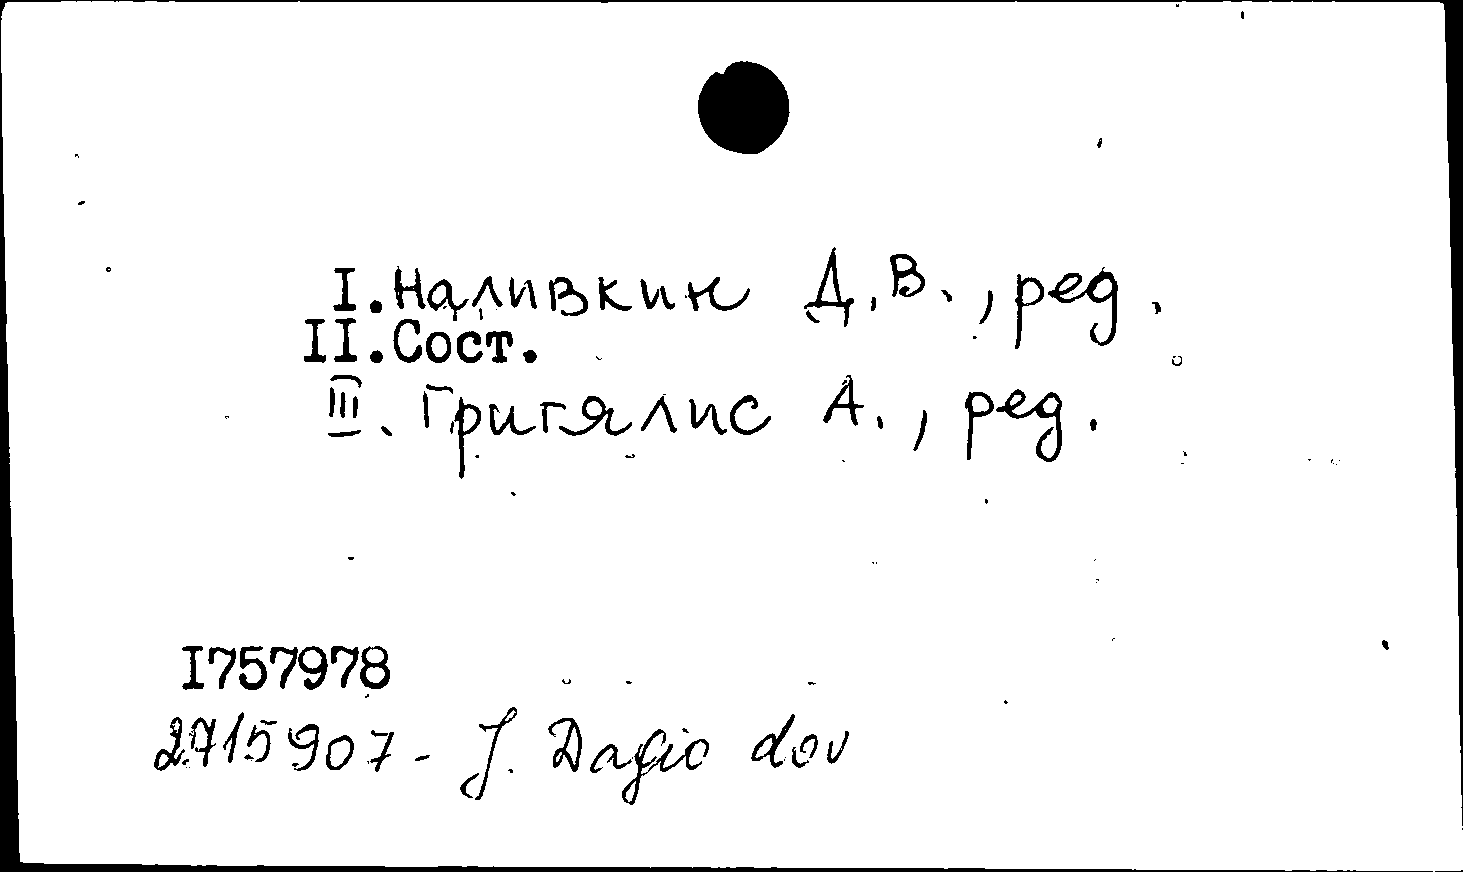 I. Наливкин Д.В., ред.
II. Сост.
III. Григялис А., ред.
I757978
2715907 - J. Dagio dov